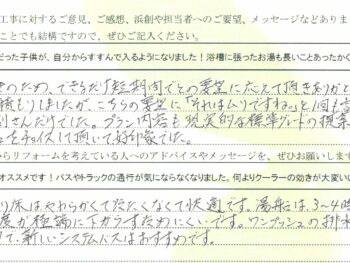 工事に対するご意見、ご感想、浜創や担当者へのご要望、メッセージなどありま
ことでも結構ですので、ぜひご記入ください。
だった子供が、自分からすすんで入るようになりました！浴槽に張ったお湯も長いことあったかく
のため、できるだけ短期間でとの要望に応えて頂きありがと
積もりしましたが、こちらの要望に「それはムリですね。」と1回も言
別さんだけでした。プラン内容も現実的な標準グレードの提案
をチョイスして頂いて好印象でした。
からリフォームを考えている人へのアドバイスやメッセージを、ぜひお願いします
オススメです！バスやトラックの通行が気にならなくなりました。何よりクーラーの効きが大変いい
り床はやわらかくてたたくなくて快適です。湯船は、3〜4時
度が極端に下がらずためにくいです。ワンプッシュの排水
て、新しいシステムバスはおすすめです。